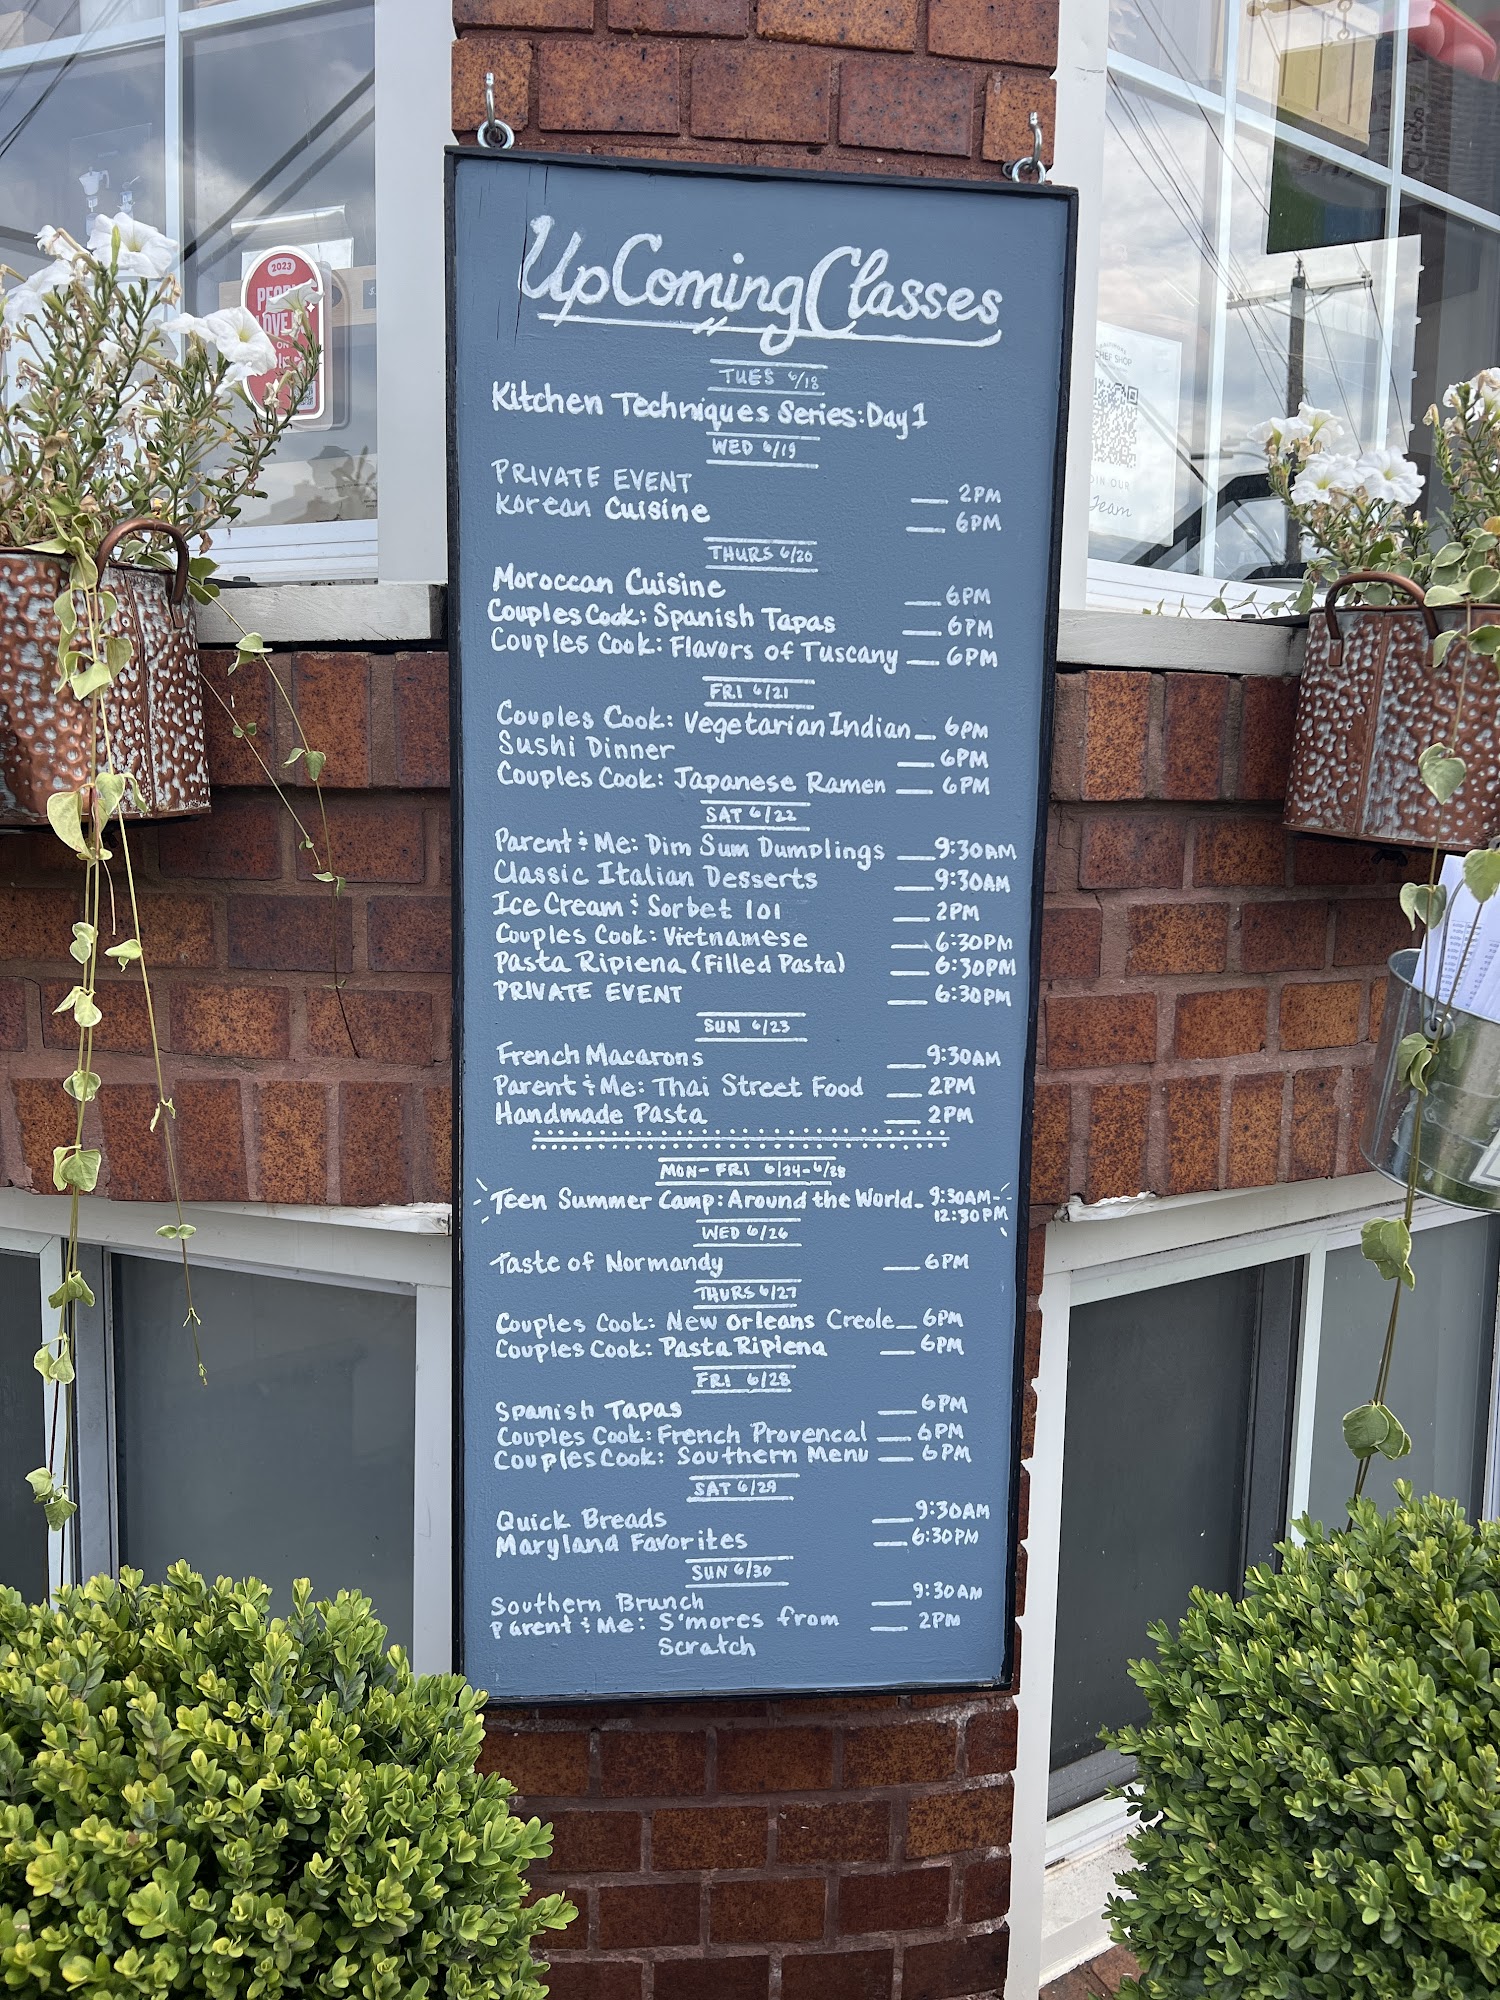 UpComing Classes
TUES 6/18
Kitchen Techniques Series: Day 1
WED 6/19
PRIVATE EVENT — 2PM
Korean Cuisine — 6PM
THURS 6/20
Moroccan Cuisine — 6PM
Couples Cook: Spanish Tapas — 6PM
Couples Cook: Flavors of Tuscany — 6PM
FRI 6/21
Couples Cook: Vegetarian Indian — 6PM
Sushi Dinner — 6PM
Couples Cook: Japanese Ramen — 6PM
SAT 6/22
Parent & Me: Dim Sum Dumplings — 9:30AM
Classic Italian Desserts — 9:30AM
Ice Cream & Sorbet 101 — 2PM
Couples Cook: Vietnamese — 6:30PM
Pasta Ripiena (Filled Pasta) — 6:30PM
PRIVATE EVENT — 6:30PM
SUN 6/23
French Macarons — 9:30AM
Parent & Me: Thai Street Food — 2PM
Handmade Pasta — 2PM
MON-FRI 6/24-6/28
Teen Summer Camp: Around the World - 9:30AM-
12:30PM
WED 6/26
Taste of Normandy — 6PM
THURS 6/27
Couples Cook: New Orleans Creole — 6PM
Couples Cook: Pasta Ripiena — 6PM
FRI 6/28
Spanish Tapas — 6PM
Couples Cook: French Provencal — 6PM
Couples Cook: Southern Menu — 6PM
SAT 6/29
Quick Breads — 9:30AM
Maryland Favorites — 6:30PM
SUN 6/30
Southern Brunch — 9:30AM
Parent & Me: S'mores from — 2PM
Scratch
2023
ON
CHEF SHOP
OUR
Team